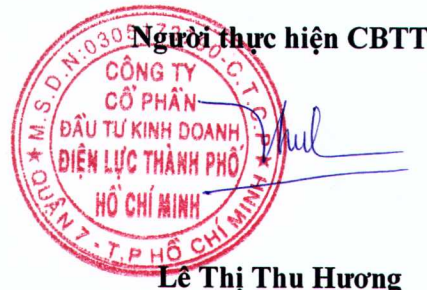 Người thực hiện CBTT
CÔNG TY
CỔ PHẦN
ĐẦU TƯ KINH DOANH
ĐIỆN LỰC THÀNH PHỐ
HỒ CHÍ MINH
QUẬN 7 - T.P HỒ CHÍ MINH
Lê Thị Thu Hương